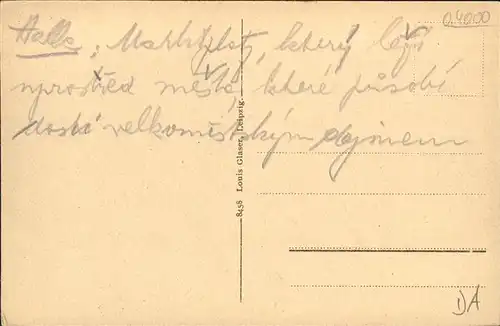 0.4000
Halle, Marktplatz, který leží
uprostřed města, které působí
dosti velkoměstským dojmem
8458 Louis Glaser, Leipzig.
DA